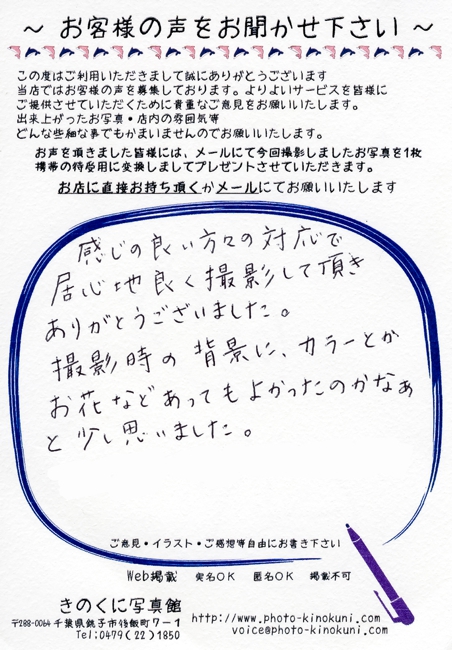 ～ お客様の声をお聞かせ下さい ～
この度はご利用いただきまして誠にありがとうございます
当店ではお客様の声を募集しております。よりよいサービスを皆様に
ご提供させていただくために貴重なご意見をお願いいたします。
出来上がったお写真・店内の雰囲気等
どんな些細な事でもかまいませんのでお願いいたします。
お声を頂きました皆様には、メールにて今回撮影しましたお写真を1枚
携帯の待受用に変換しましてプレゼントさせていただきます。
お店に直接お持ち頂くかメールにてお願いいたします
感じの良い方々の対応で
居心地良く撮影して頂き
ありがとうございました。
撮影時の背景に、カラーとか
お花などあってもよかったのかなぁ
と少し思いました。
ご意見・イラスト・ご感想等自由にお書き下さい
Web掲載 実名OK 匿名OK 掲載不可
きのくに写真館
〒288-0064 千葉県銚子市後飯町7-1
Tel:0479(22)1850
http://www.photo-kinokuni.com/
voice@photo-kinokuni.com